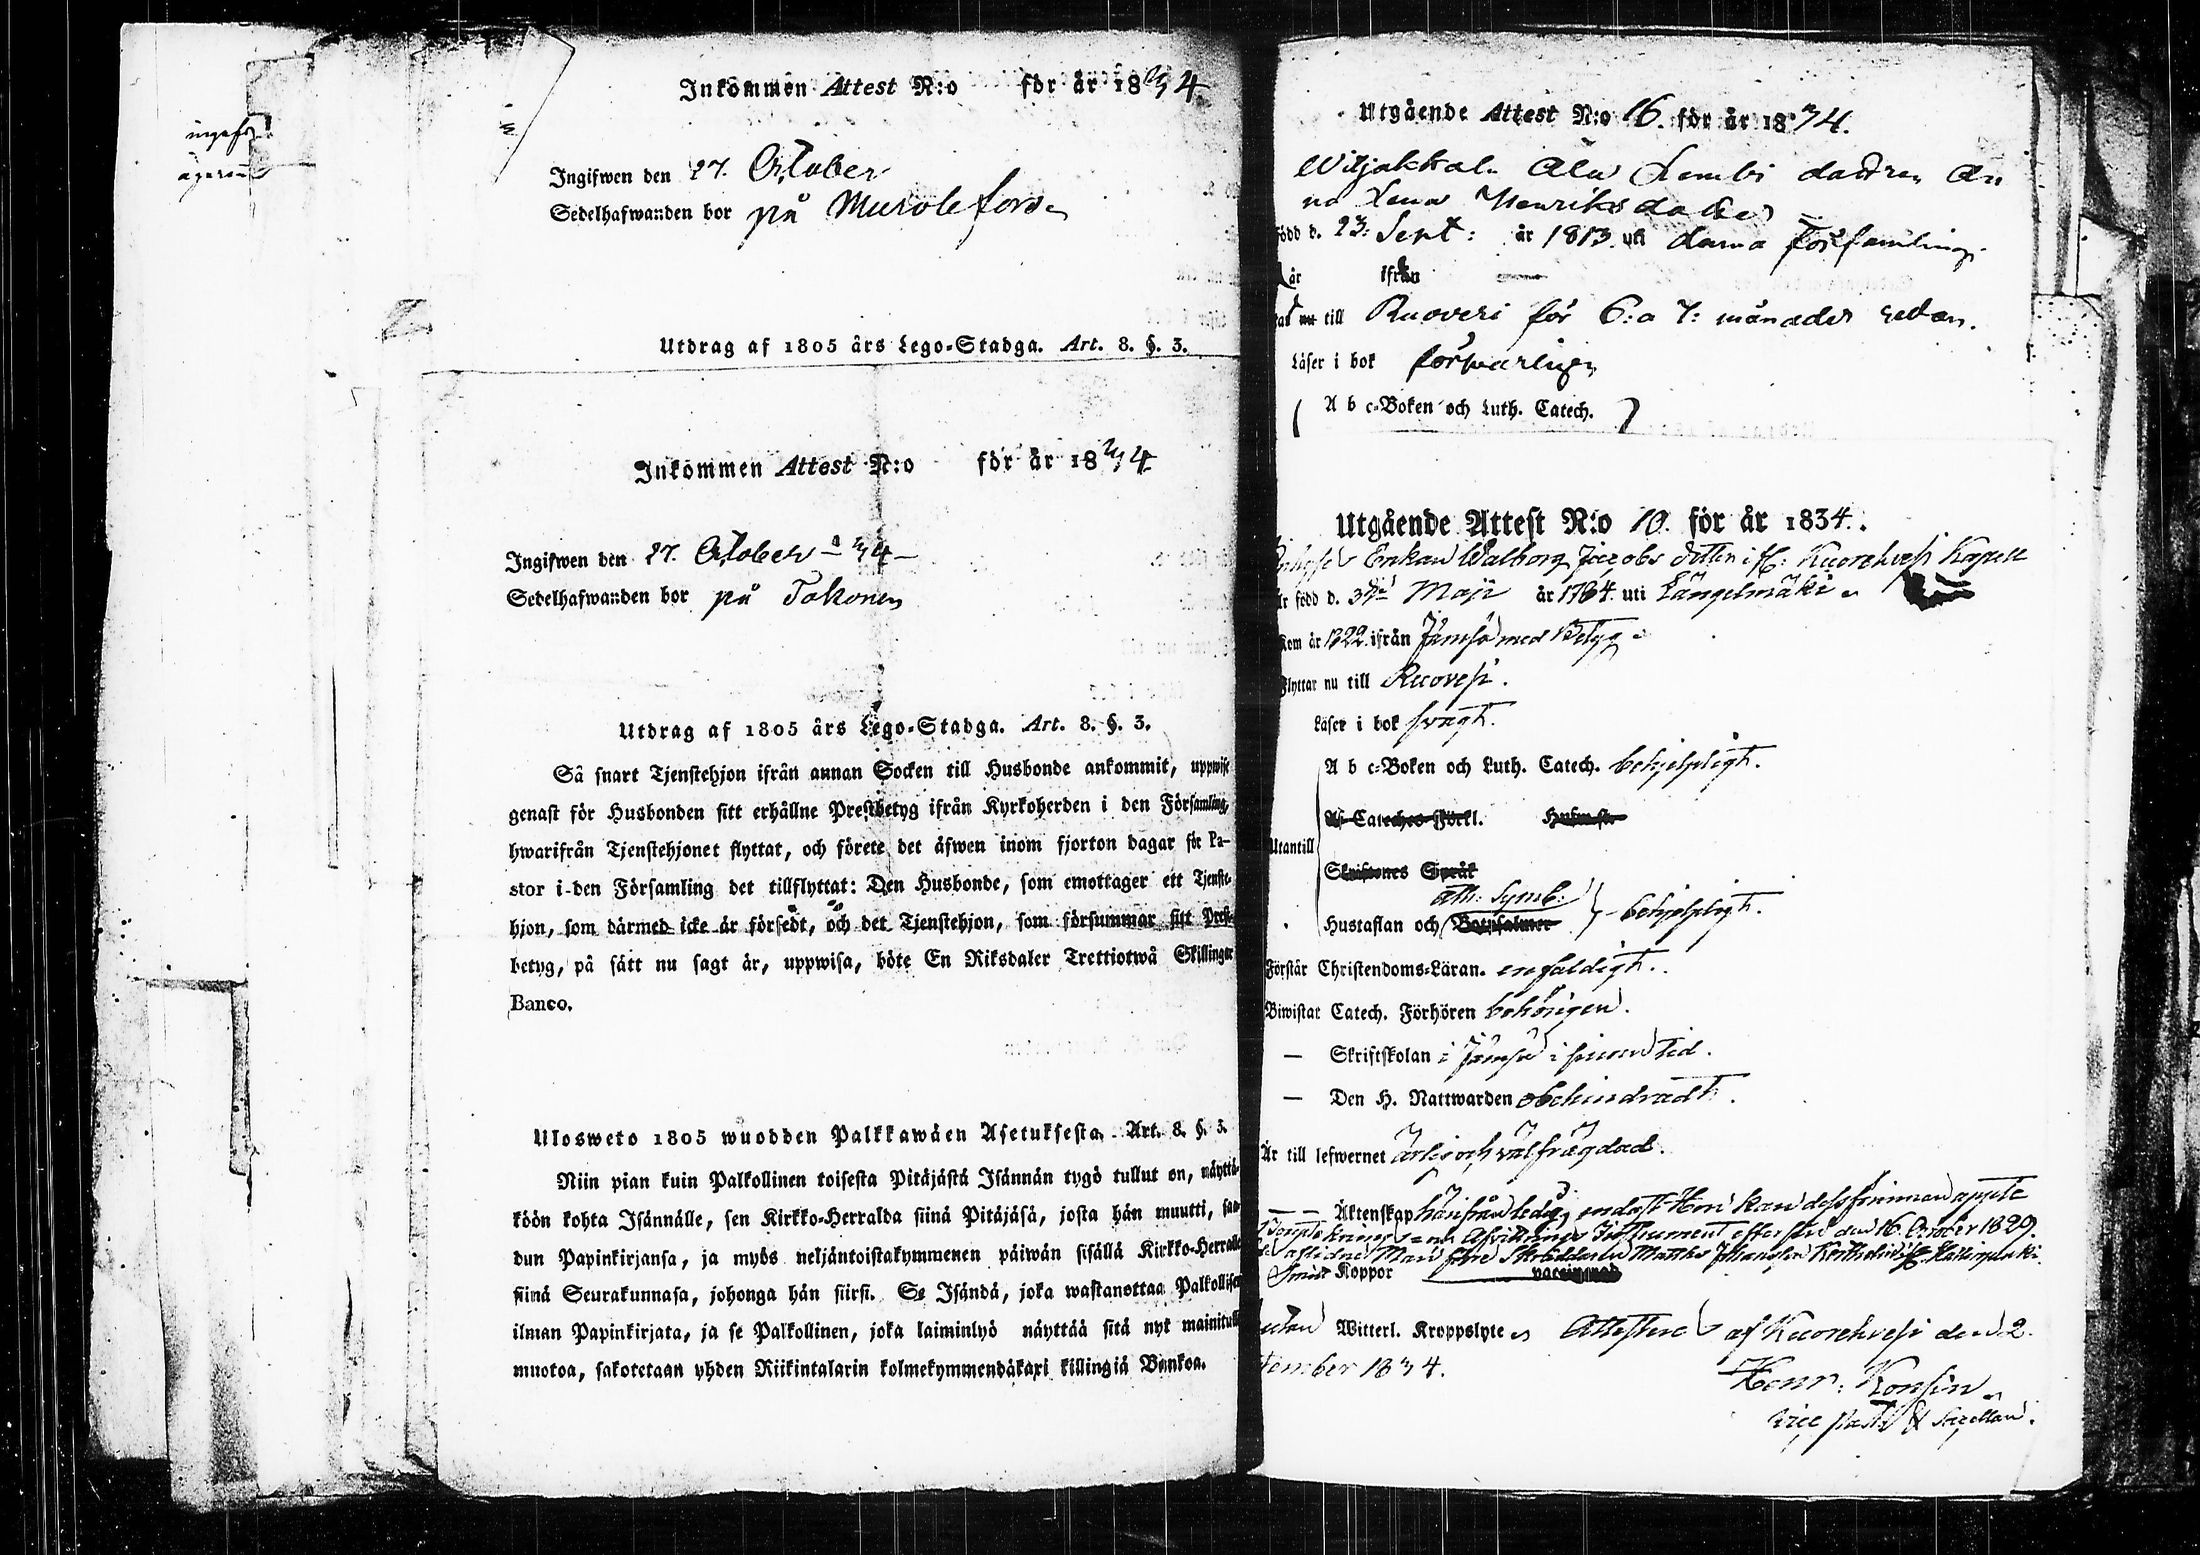 ingafs
ägaren
Inkommen Attest N:o för år 1834
Ingifwen den 27. October
Sedelhafwanden bor på Murolefors
Utdrag af 1805 års Lego-Stadga. Art. 8. §. 3.
Inkommen Attest N:o för år 1834
Ingifwen den 27. October 34
Sedelhafwanden bor på Takonen
Utdrag af 1805 års Lego-Stadga. Art. 8. §. 3.
Så snart Tjenstehjon ifrån annan Socken till Husbonde ankommit, uppwise
genast för Husbonden sitt erhållne Prestbetyg ifrån Kyrkoherden i den Församling,
hwarifrån Tjenstehjonet flyttat, och förete det äfwen inom fjorton dagar för Pa-
stor i den Församling det tillflyttat: Den Husbonde, som emottager ett Tjenste-
hjon, som därmed icke är försedt, och det Tjenstehjon, som försummar sitt Prest-
betyg, på sätt nu sagt är, uppwisa, böte En Riksdaler Trettiotwå Skillingar
Banco.
Ulosweto 1805 wuodden Palkkawäen Asetuksesta. Art. 8. §. 3.
Niin pian kuin Palkollinen toisesta Pitäjästä Isännän tygö tullut on, näyttä-
köön kohta Isännälle, sen Kirkko-Herralda siinä Pitäjäsä, josta hän muutti, saa-
dun Papinkirjansa, ja myös neljäntoistakymmenen päiwän sisällä Kirkko-Herralle
siinä Seurakunnasa, johonga hän siirsi. Se Isändä, joka wastanottaa Palkollisen
ilman Papinkirjata, ja se Palkollinen, joka laiminlyö näyttää sitä nyt mainitulla
muotoa, sakotetaan yhden Riikintalarin kolmekymmendäkaxi killingiä Bankoa.
Utgående Attest N:o 16. för år 1834.
Wiljakkal. Ala Lembi dottren An
na Lena Henriksdotter
född d. 23: Sept: år 1813. uti denna församling
är ifrån
nu till Ruovesi för 6: a 7: månader sedan.
Läser i bok försvarligen
A b c-Boken och Luth. Catech.
Utgående Attest N:o 10. för år 1834.
Enkan Walborg Jacobs dotter i H: Kuorehvesi Kapell
Är född d. 3die Maji år 1764. uti Längelmäki
Kom år 1822. ifrån Jämsä med Betyg
Flyttar nu till Ruovesi.
Läser i bok svagt.
A b c-Boken och Luth. Catech. behjelpligt.
Af Cateches-Förkl. Husw.
Utantill
Skriftenes Språk
Ath: Symb:
Hustaflan och Botpsalmer behjelpligt.
Förstår Christendoms-Läran. enfaldigt.
Biwistat Catech. Förhören behörigen.
— Skriftskolan i Jämsä i sinom tid.
— Den H. Nattwarden obehindradt.
Är till lefwernet ärlig och välfrägdad.
— — Äktenskap härifrån ledig, endast Hon kan dess förinnan uppte
Bouptekning samt Afvittrings Instrument efter sin den 16 October 1829.
aflidne Man förre Skräddaren Matthes Johansson
Koppor vaccinerad
utan Witterl. Kroppslyte Attesterar af Kuorehvesi den 2.
tember 1834.
Henr: Konsin
vice past & Sacellan.